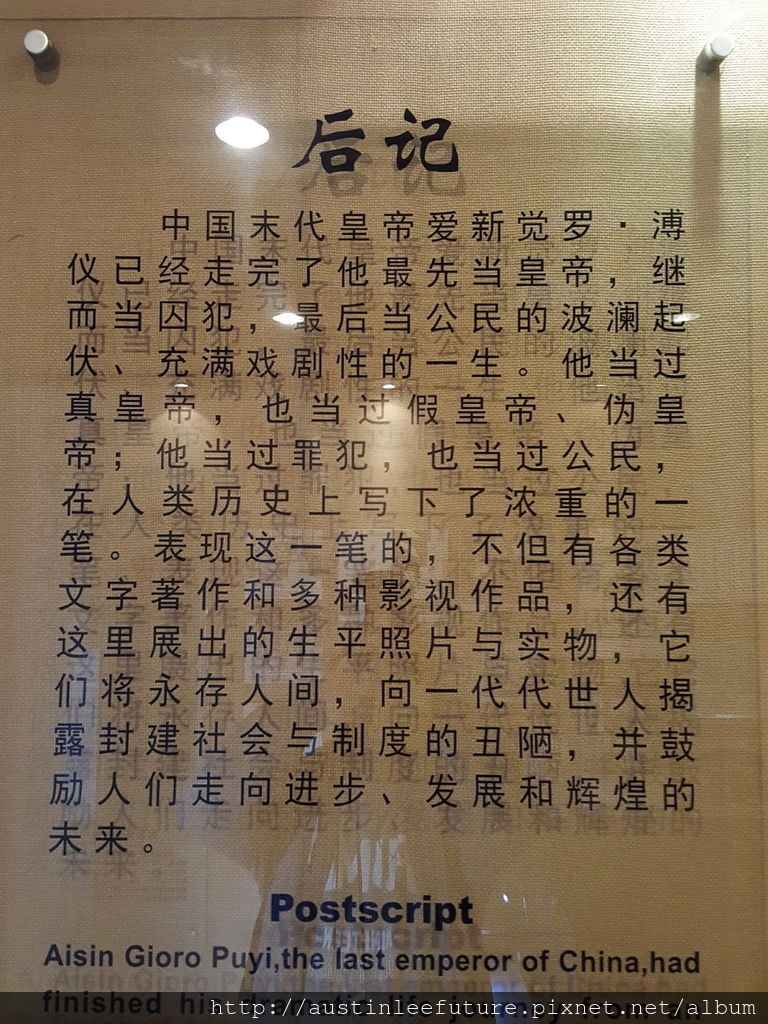 后记
中国末代皇帝爱新觉罗·溥
仪已经走完了他最先当皇帝，继
而当囚犯，最后当公民的波澜起
伏、充满戏剧性的一生。他当过
真皇帝，也当过假皇帝、伪皇
帝；他当过罪犯，也当过公民，
在人类历史上写下了浓重的一
笔。表现这一笔的，不但有各类
文字著作和多种影视作品，还有
这里展出的生平照片与实物，它
们将永存人间，向一代代世人揭
露封建社会与制度的丑陋，并鼓
励人们走向进步、发展和辉煌的
未来。
Postscript
Aisin Gioro Puyi,the last emperor of China,had
finished his dramatic life journey from an
http://austinleefuture.pixnet.net/album